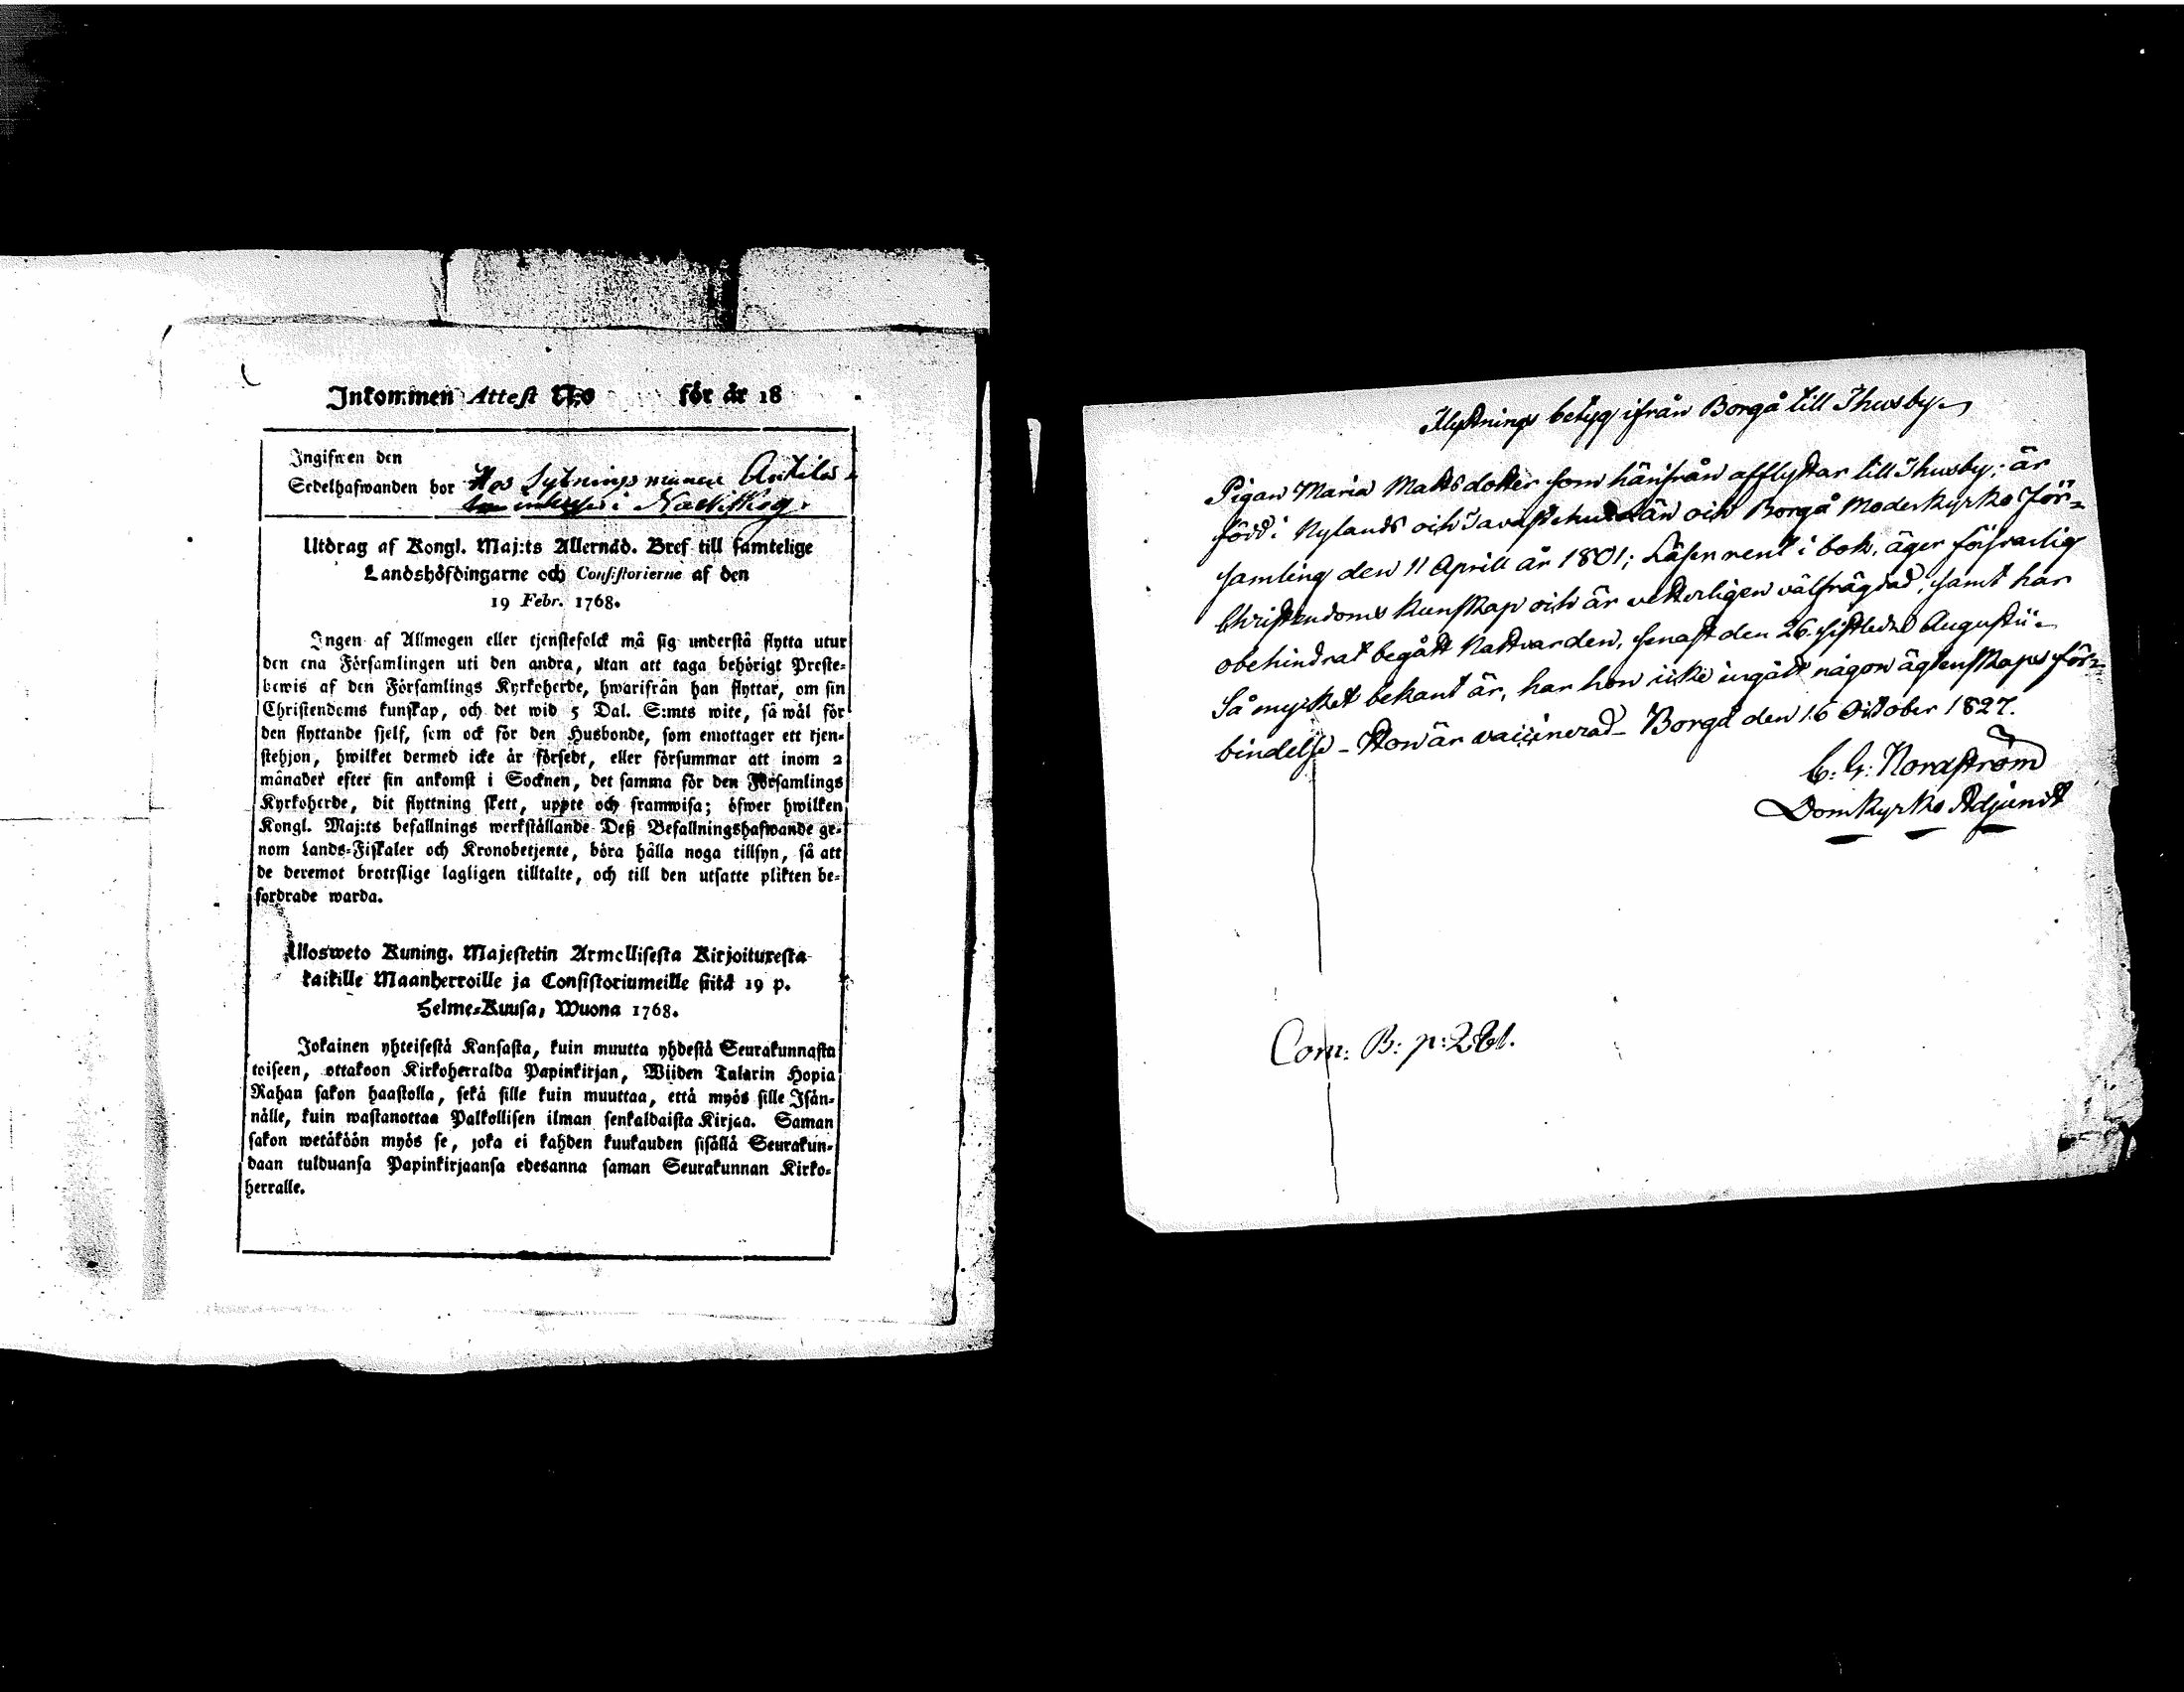 Inkommen Attest N:o för år 18
Ingifwen den
Sedelhafwanden bor Hos Sytningsmannen Anttila
i Nackskog.
Utdrag af Kongl. Maj:ts Allernåd. Bref till samtelige
Landshöfdingarne och Consistorierne af den
19 Febr. 1768.
Ingen af Allmogen eller tjenstefolck må sig understå flytta utur
den ena Församlingen uti den andra, utan att taga behörigt Preste-
bewis af den Församlings Kyrkoherde, hwarifrån han flyttar, om sin
Christendoms kunskap, och det wid 5 Dal. S:mts wite, så wäl för
den flyttande sjelf, som ock för den Husbonde, som emottager ett tjen-
stehjon, hwilket dermed icke är försedt, eller försummar att inom 2
månader efter sin ankomst i Socknen, det samma för den Församlings
Kyrkoherde, dit flyttning skett, uppte och framwisa; öfwer hwilken
Kongl. Maj:ts befallnings werkställande Deß Befallningshafwande ge-
nom Lands-Fiskaler och Kronobetjente, böra hålla noga tillsyn, så att
de deremot brottslige lagligen tilltalte, och till den utsatte plikten be-
fordrade warda.
Ulosweto Kuning. Majestetin Armollisesta Kirjoituxesta
kaikille Maanherroille ja Consistoriumeille siitä 19 p.
Helme-Kuusa, Wuona 1768.
Jokainen yhteisestä Kansasta, kuin muutta yhdestä Seurakunnasta
toiseen, ottakoon Kirkoherralda Papinkirjan, Wiiden Talarin Hopia
Rahan sakon haastolla, sekä sille kuin muuttaa, että myös sille Isän-
nälle, kuin wastanottaa Palkollisen ilman senkaldaista Kirjaa. Saman
sakon wetäköön myös se, joka ei kahden kuukauden sisällä Seurakun-
daan tulduansa Papinkirjaansa edesanna saman Seurakunnan Kirko-
herralle.
Flyttnings betyg ifrån Borgå till Thusby
Pigan Maria Mattsdotter som härifrån afflyttar till Thusby; är
född i Nylands och Tavastehus Län och Borgå Moderkyrko För=
samling den 11 Aprill år 1801; Läser rent i bok, äger försvarlig
Christendoms kunskap och är vetterligen välfrägdad, samt har
obehindrat begått Nattvarden, senast den 26. sistledne Augustii.
Så mycket bekant är, har hon icke ingått någon ägtenskaps för=
bindelse - Hon är vaccinerad - Borgå den 16 October 1827.
C: G: Nordström
Domkyrko Adjunct
Com: B: p: 281.